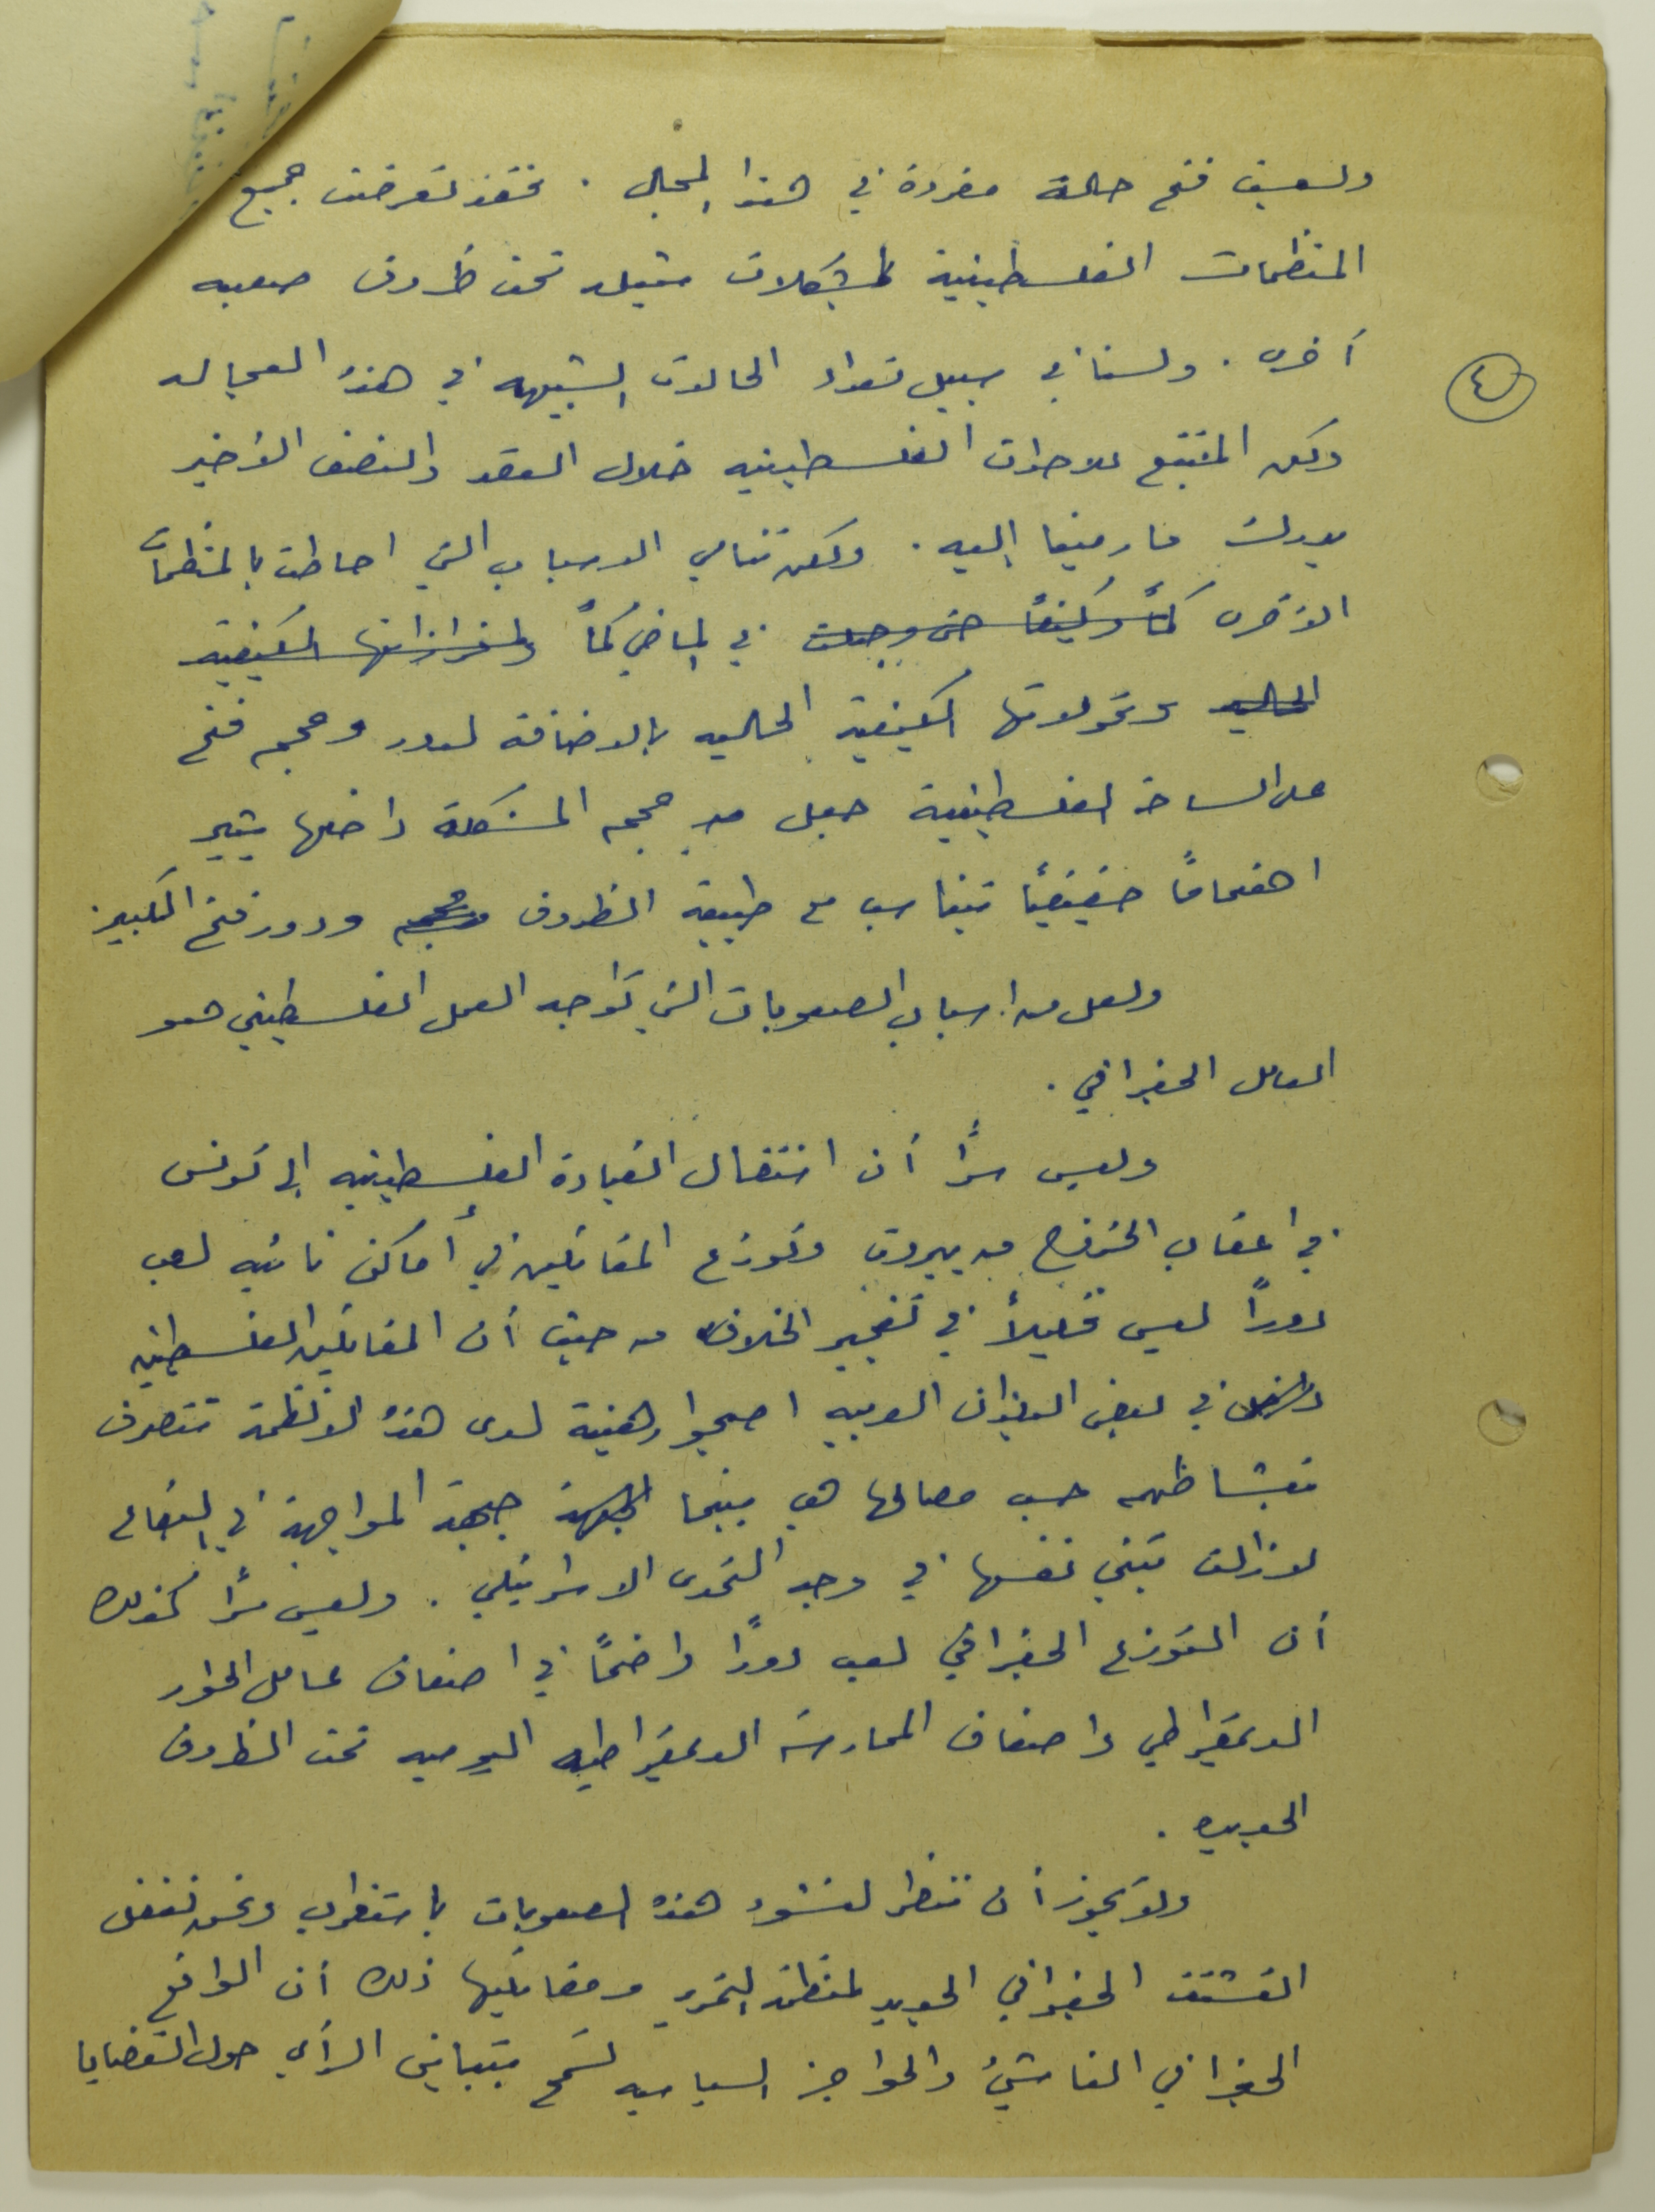 وليست فتح حالة مفردة في هذا المجال. فقد تعرضت جميع
المنظمات الفلسطينية لمشكلات مثيله تحت ظروف صعبه
أخرى. ولسنا في سبيل تعداد الحالات الشبيهه في هذه العجاله
٤
ولكن المتتبع للاحداث الفلسطينيه خلال العقد والنصف الأخير
يدرك ما رمينا إليه. ولكن تنامي الاسباب التي احاطت بالمنظمات
الأخرى كماً وكيفاً في الماضي كماً الكيفيه
الحاليه وتحولاتها الكيفية الحاليه بالاضافة لدور وحجم فتح
على الساحة الفلسطينية جعل من حجم المشكلة داخلها يثير
اهتماماً حقيقياً يتناسب مع طبيعة الظروف وحجم ودور فتح الكبير.
ولعل من اسباب الصعوبات التي تواجه العمل الفلسطيني هو
العامل الجغرافي.
وليس سراً أن انتقال القيادة الفلسطينيه إلى تونس
في اعقاب الخروج من بيروت وتوزع المقاتلين في أماكن نائيه لعب
دوراً ليس قليلاً في تفجير الخلاف من حيث أن المقاتلين الفلسطينين
في بعض البلدان العربيه اصبحوا رهينة لدى هذه الأنظمة تتصرف
بنشاطهم حسب مصالحها هي بينما جبهة المواجهة في البقاع
لازالت تبني نفسها في وجه التحدي الاسرائيلي. وليس سراً كذلك
أن التوزع الجغرافي لعب دوراً واضحاً في اضعاف عامل الحوار
الديمقراطي واضعاف الممارسة الديمقراطيه اليوميه تحت الظروف
الجديده.
ولا يجوز أن ننظر لنشوء هذه الصعوبات باستغراب ونحن نغفل
التشتت الجغرافي الجديد لمنظمة التحرير ومقاتليها ذلك أن الواقع
الجغرافي الناشئ والحواجز السياسيه تسمح بتباين الرأي حول القضايا